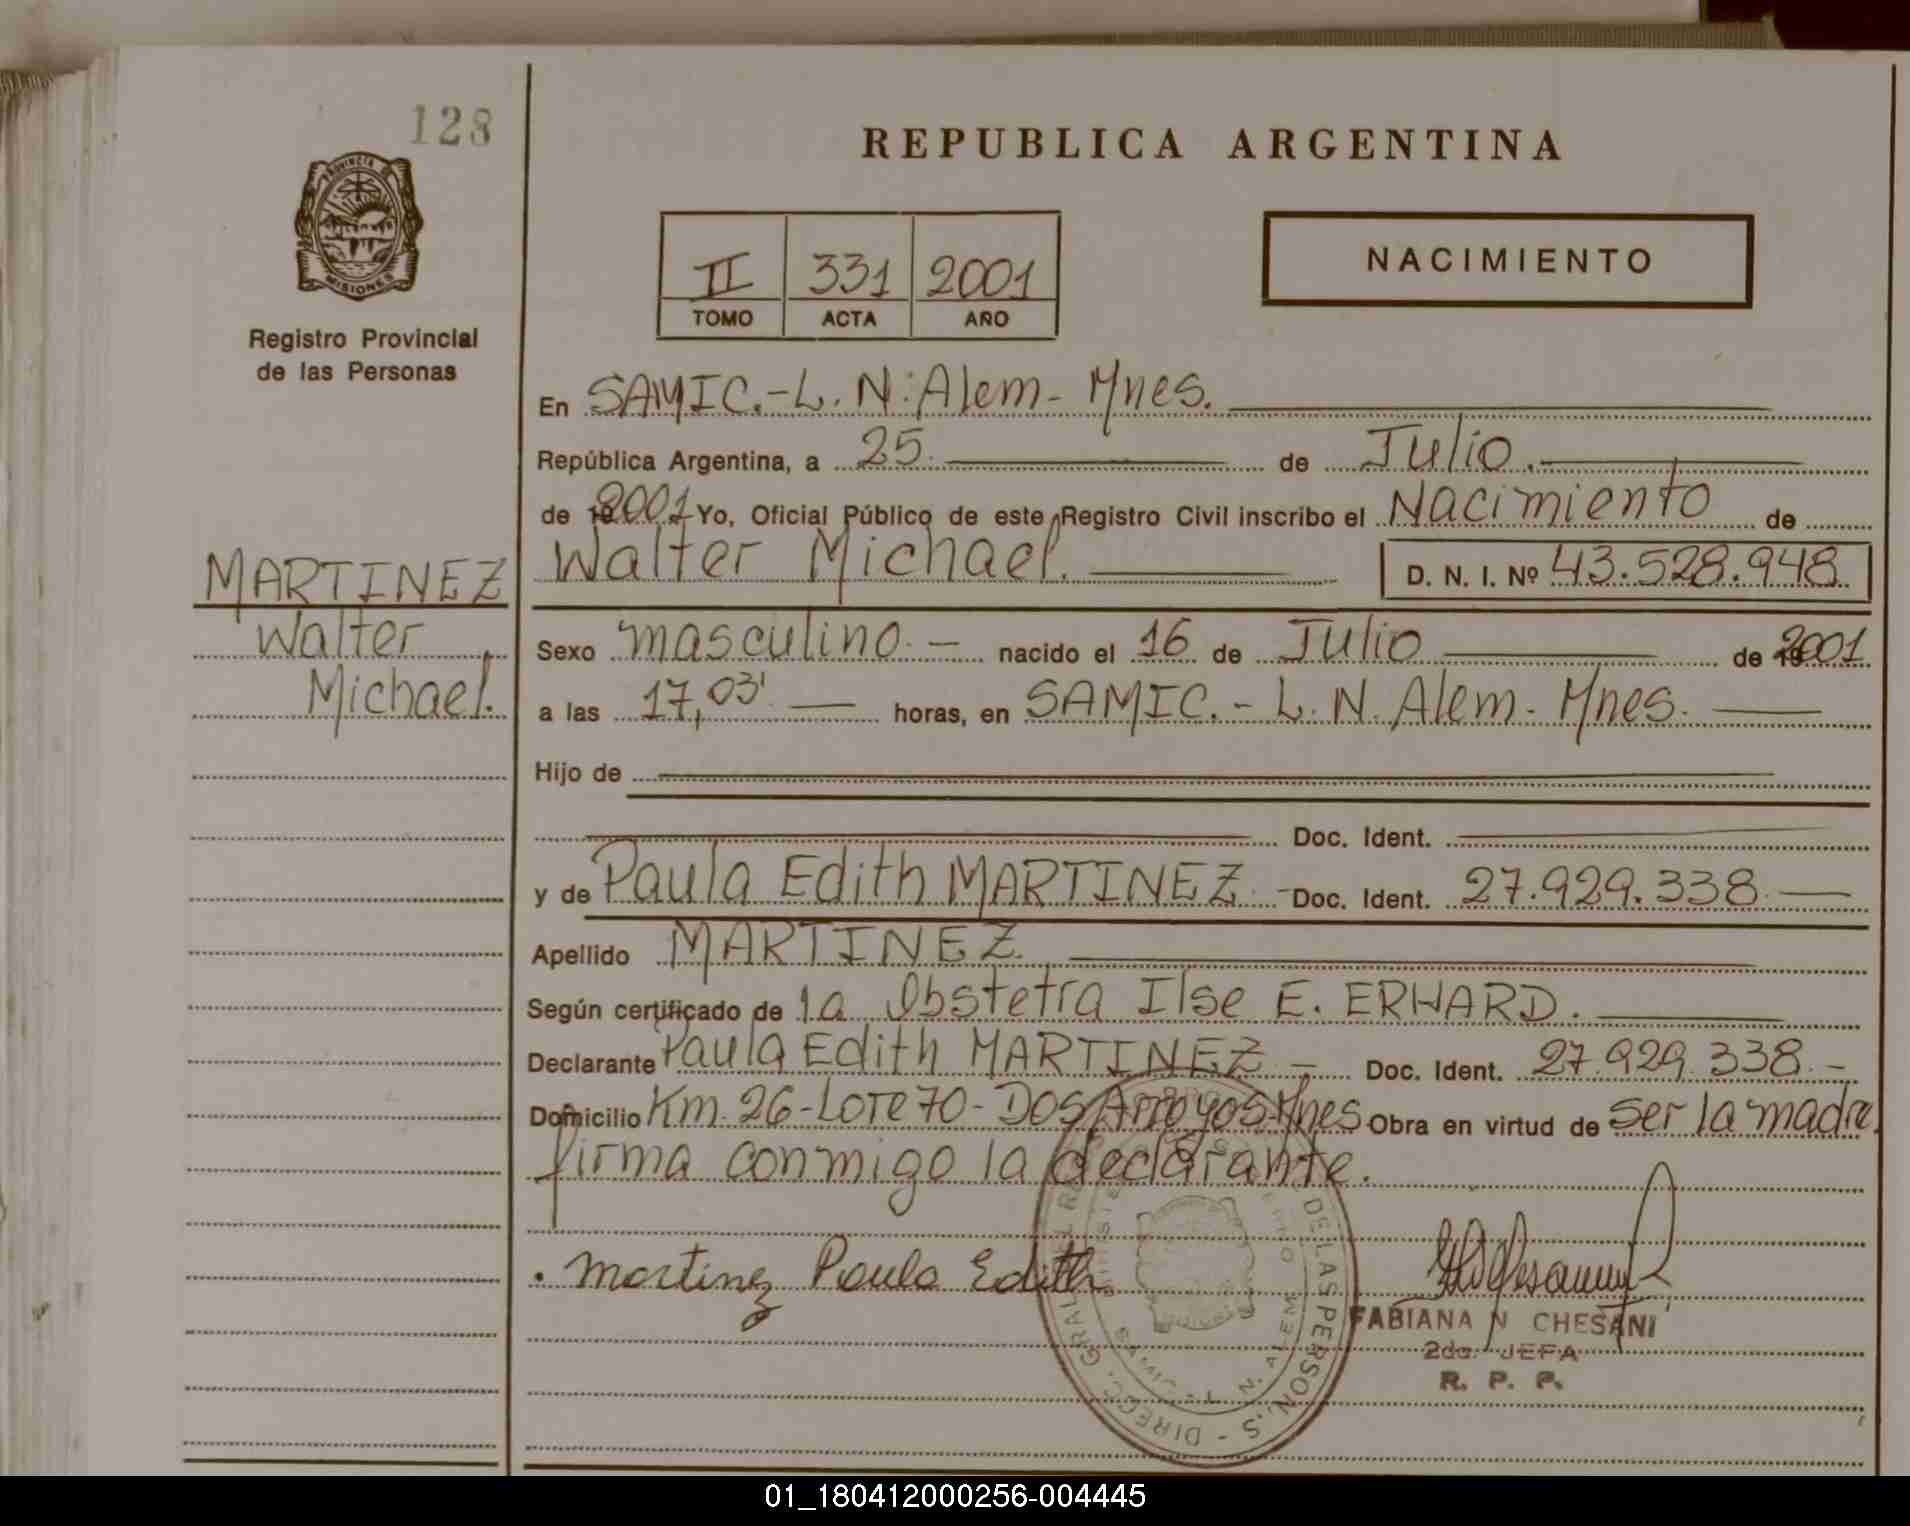 128
PROVINCIA DE
MISIONES
Registro Provincial
de las Personas
MARTINEZ
Walter
Michael.
REPUBLICA ARGENTINA
II 331 2001
TOMO ACTA AÑO
NACIMIENTO
En SAMIC.-L.N. Alem- Mnes.
República Argentina, a 25 de Julio.
de 192001 Yo, Oficial Público de este Registro Civil inscribo el Nacimiento de
Walter Michael. D. N. I. Nº 43.528.948
Sexo masculino.- nacido el 16 de Julio de 192001
a las 17,03' horas, en SAMIC.- L. N. Alem- Mnes.
Hijo de
Doc. Ident.
y de Paula Edith MARTINEZ.- Doc. Ident. 27.929.338
Apellido MARTINEZ
Según certificado de la Obstetra Ilse E. ERHARD.
Declarante Paula Edith MARTINEZ - Doc. Ident. 27.929.338.-
Domicilio Km. 26-Lote 70- Dos Arroyos-Mnes Obra en virtud de ser la madre.
firma conmigo la declarante.
. Martinez Paula Edith
FABIANA N CHESANI
2da. JEFA
R. P. P.
DIREC. GRAL. DE LAS PERSONAS
01_180412000256-004445